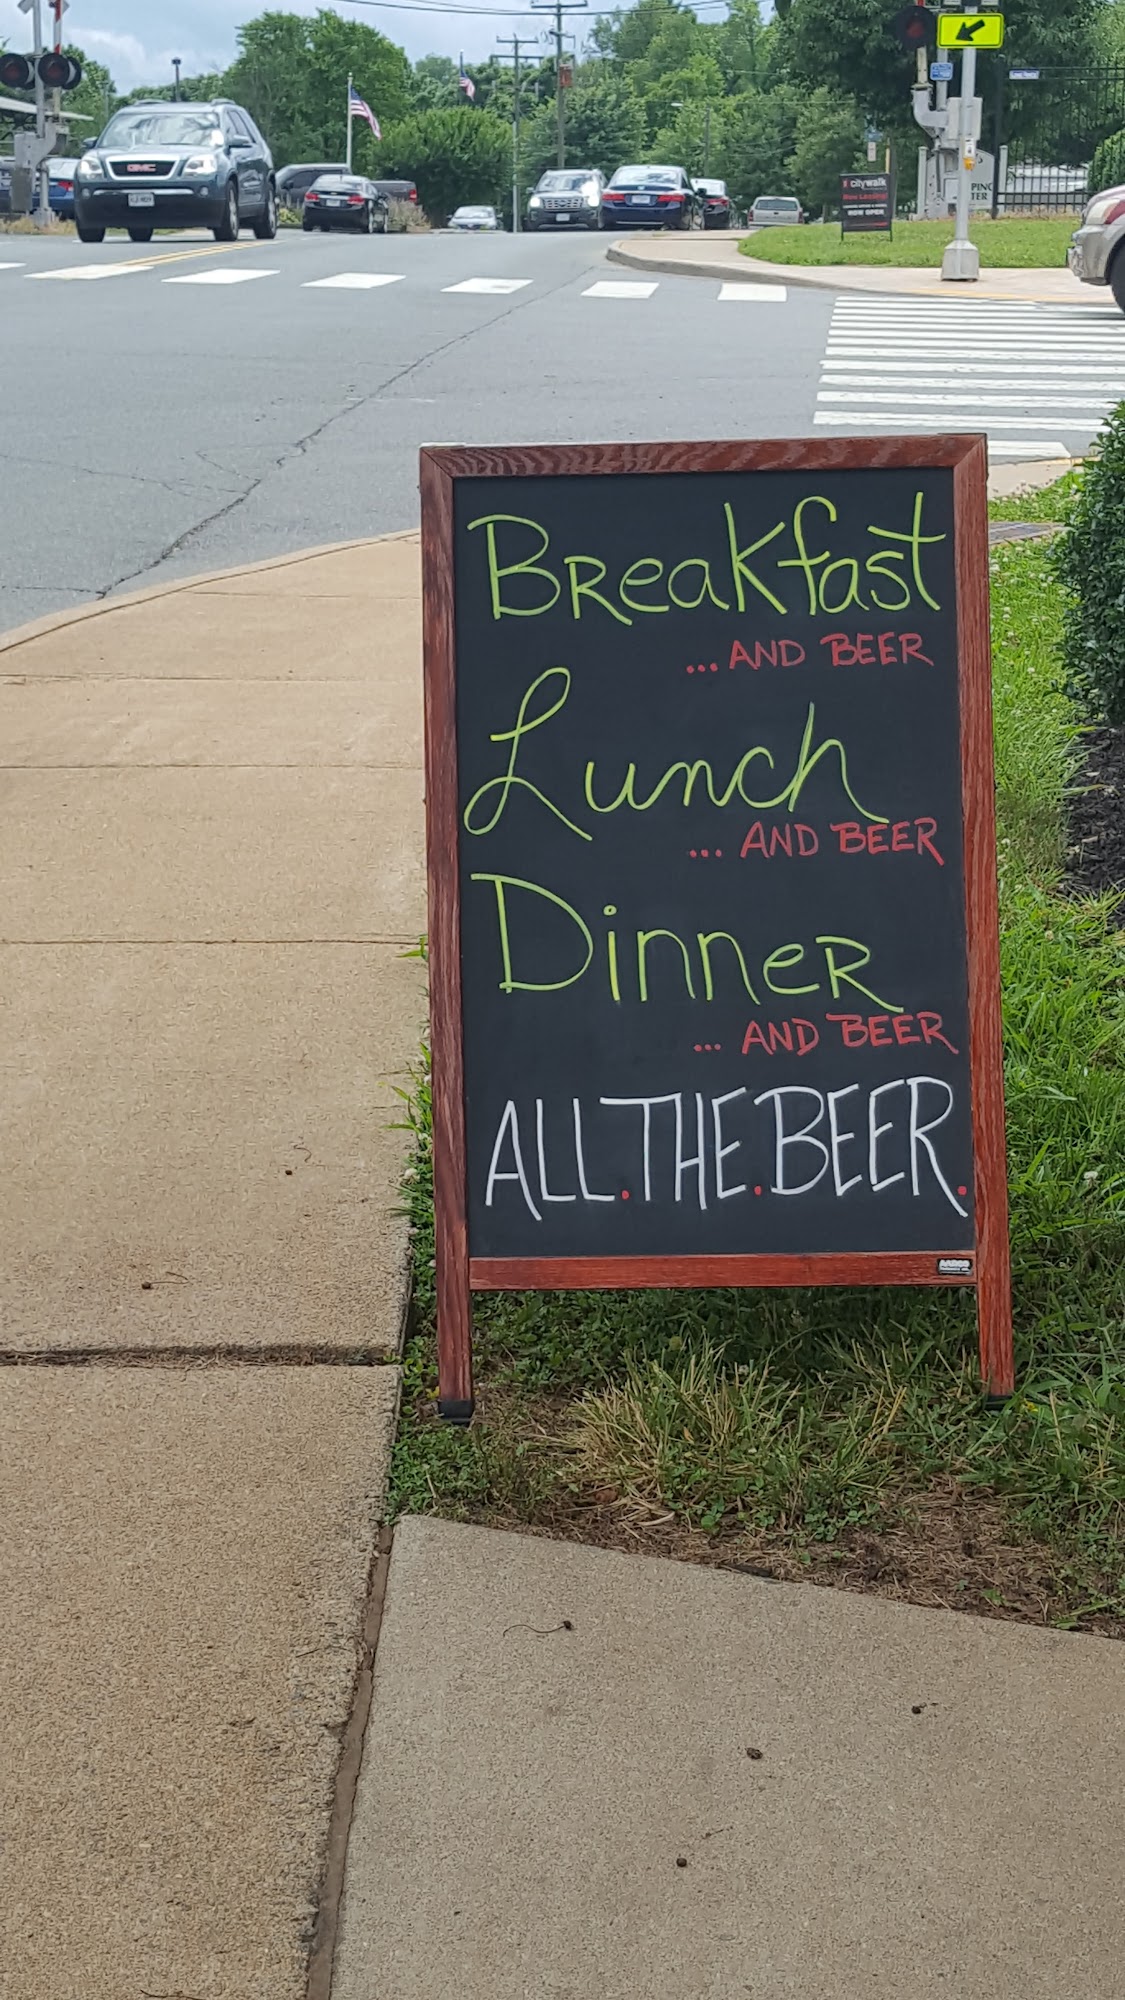 GMC
citywalk
NOW OPEN
BReakfast
...AND BEER
Lunch
... AND BEER
DinneR
... AND BEER
ALL.THE.BEER.